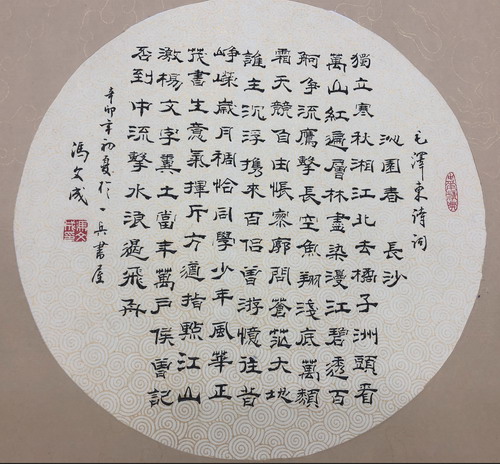 毛澤東詩詞
沁園春 長沙
獨立寒秋湘江北去橘子洲頭看
萬山紅遍層林盡染漫江碧透百
舸争流鷹擊長空魚翔淺底萬類
霜天競自由悵寥廓問蒼茫大地
誰主沉浮携來百侣曾游憶往昔
崢嶸歲月稠恰同學少年風華正
茂書生意氣揮斥方遒指點江山
激揚文字糞土當年萬户侯曾記
否到中流擊水浪遏飛舟
辛卯年初夏於一兵書屋
馮文成